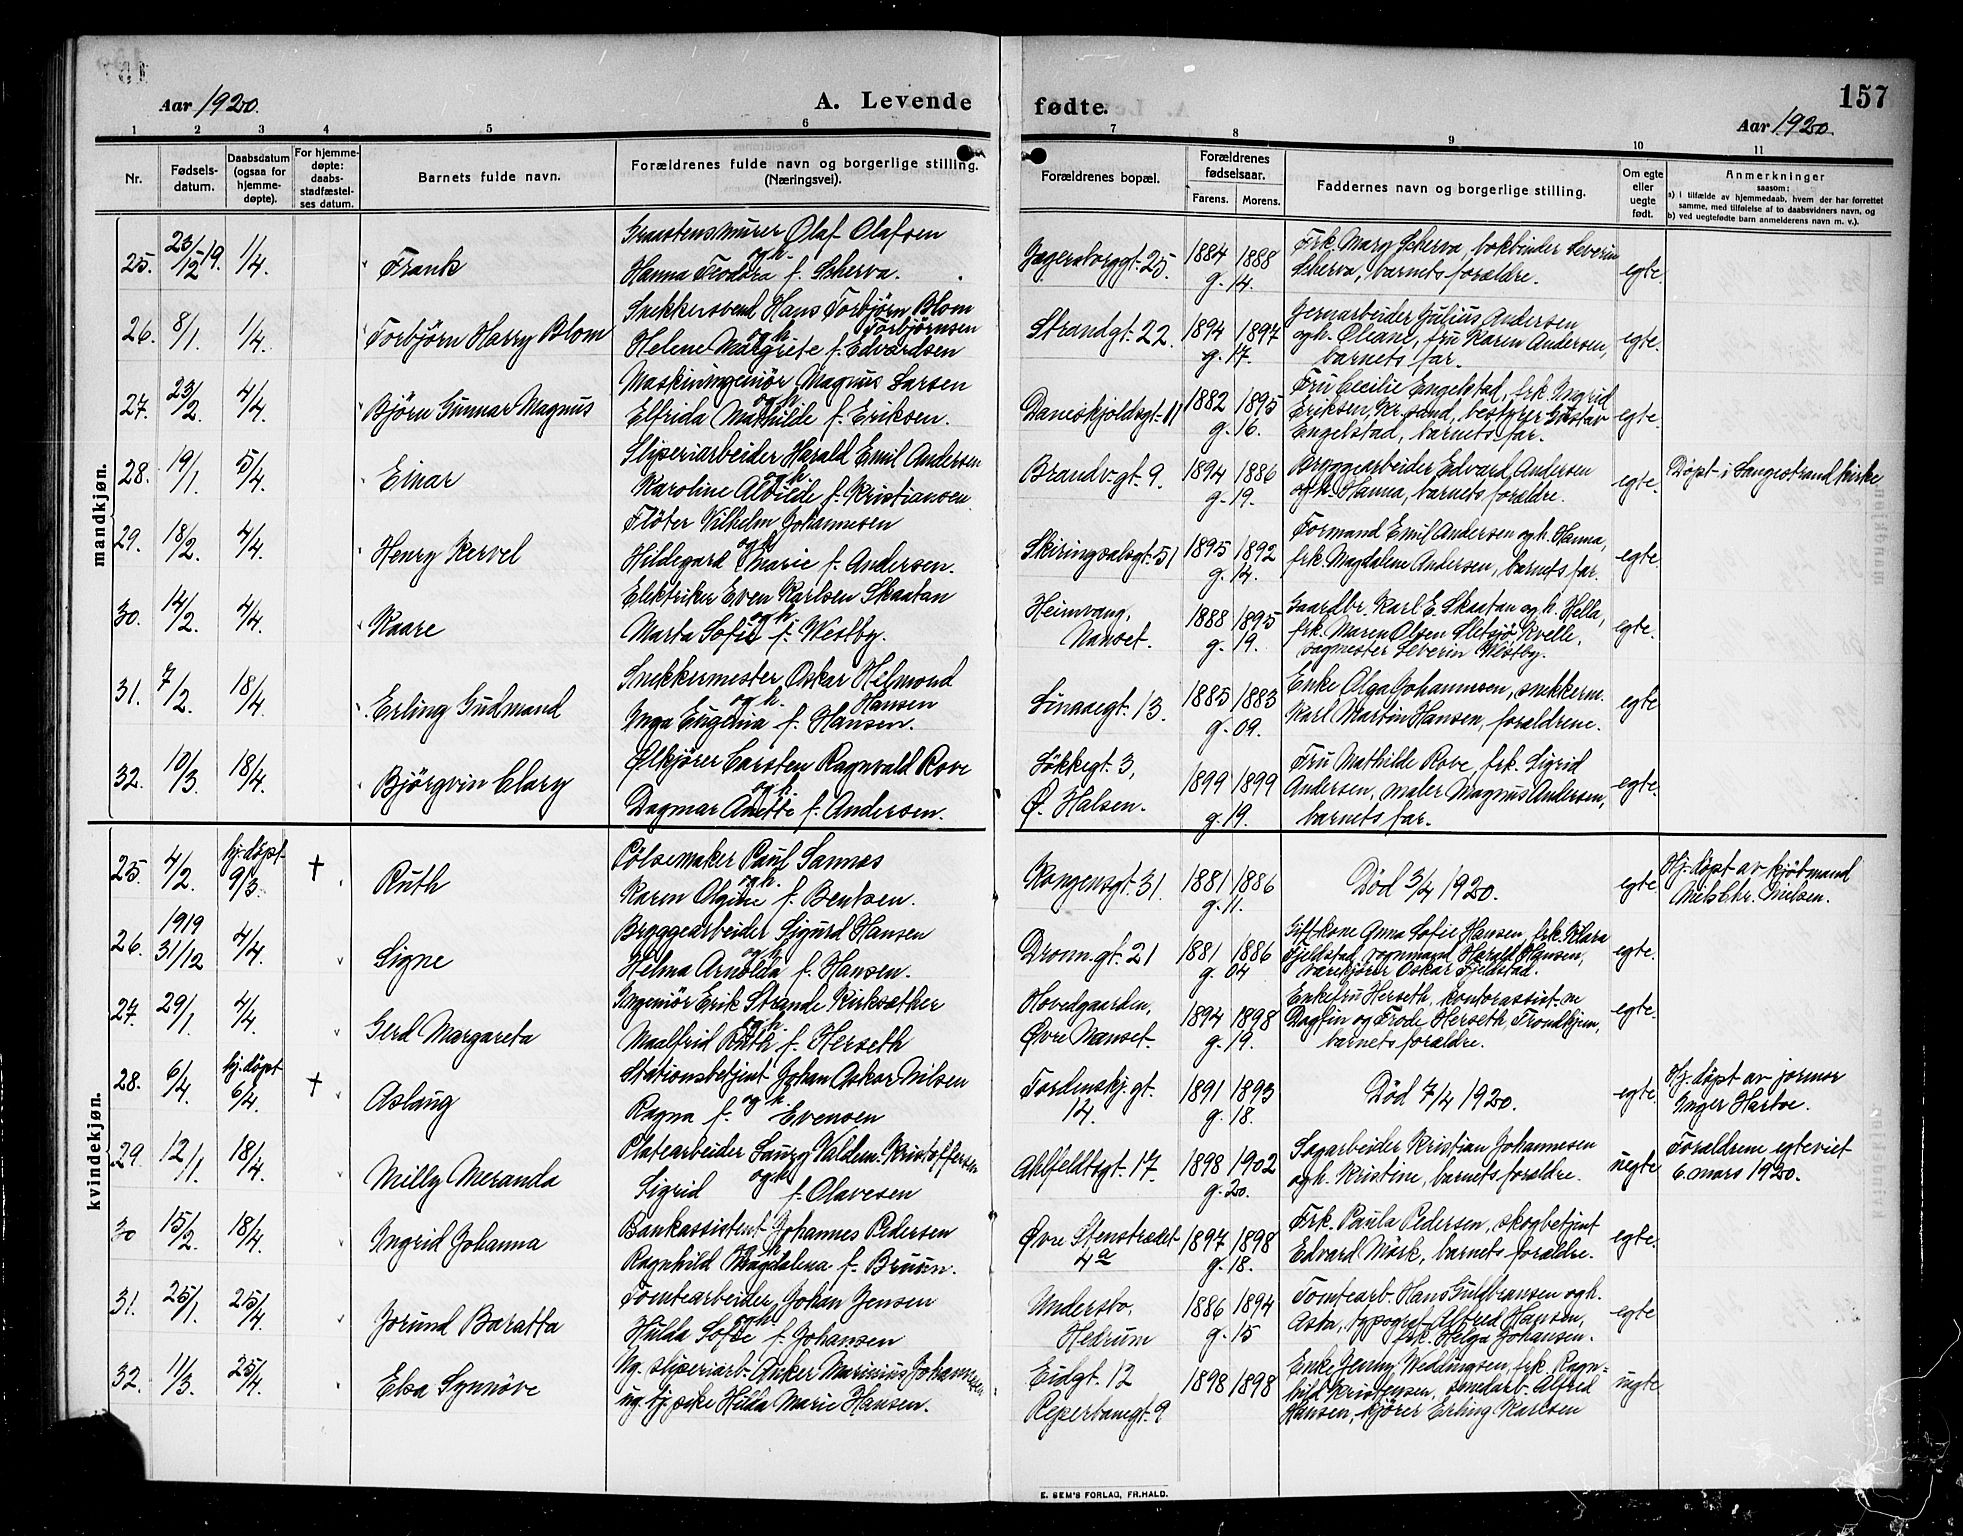 Aar 1920.
A. Levende
fødte.
157
Aar 1920.
1 2 3 4 5 6 7 8 9 10 11
Nr.
Fødsels-
datum.
Daabsdatum
(ogsaa for
hjemme-
døpte).
For hjemme-
døpte:
daabs-
stadfæstel-
ses datum.
Barnets fulde navn.
Forældrenes fulde navn og borgerlige stilling.
(Næringsvei).
Forældrenes bopæl.
Forældrenes
fødselsaar.
Farens. Morens.
Faddernes navn og borgerlige stilling.
Om egte
eller
uegte
født.
Anmerkninger
saasom:
a) i tilfælde av hjemmedaab, hvem der har forrettet
samme, med tilføielse af to daabsvidners navn, og
b) ved uegtefødte barn anmelderens navn m. v.).
mandkjøn.
25. 23/12 19. 1/4. Frank
Graastensmurer Olaf Olafsen
og h.
Hanna Teodora f. Scherva.
Jegersborggt. 25. 1884 1888
g. 14.
Frk. Mary Scherva, bokbinder Severin
Scherva, barnets forældre.
egte.
26. 8/1. 1/4. Torbjørn Harry Blom
Snekkersvend Hans Torbjørn Blom
Torbjørnsen
og h.
Helene Margrete f. Edvardsen
Strandgt. 22. 1894 1897
g. 17.
Jernarbeider Julius Andersen
og h. Oleane, fru Karen Andersen,
barnets far.
egte.
27. 23/2. 4/4. Bjørn Gunnar Magnus
Maskiningeniør Magnus Larsen
og h.
Elfrida Mathilde f. Eriksen.
Daneskjoldsgt. 11 1882 1895
g. 16.
Fru Cecilie Engelstad, frk. Ingrid
Eriksen, Kr.sand, bestyrer Gustav
Engelstad, barnets far.
egte.
28. 19/1. 5/4. Einar
Sliperiarbeider Harald Emil Andersen
og h.
Karoline Alvilde f. Kristiansen
Brandv.gt. 9. 1894 1886
g. 19.
Bryggearbeider Edvard Andersen
og h. Hanna, barnets forældre.
egte.
Døpt i Langestrand kirke
29. 18/2. 4/4. Henry Kervel
Fløter Vilhelm Johannesen
og h.
Hildegard Marie f. Andersen.
Skiringsalsgt. 51 1895 1892
g. 14.
Formand Emil Andersen og h. Hanna,
frk. Magdalene Andersen, barnets far.
egte.
30. 14/2. 4/4. Kaare
Elektriker Even Karlsen Skaatan
og h.
Marta Sofie f. Westby.
Heimvang,
Nanset. 1888 1895
g. 19.
Gaardbr. Karl E. Skaatan og h. Hella,
frk. Maren Olsen Sletsjø Kvelle,
vogmester Severin Westby.
egte.
31. 7/2. 18/4. Erling Gudmand
Snekkermester Oskar Helmond
Hansen
og h.
Inga Eugenia f. Hansen.
Linaaegt. 13. 1885 1883
g. 09.
Enke Olga Johannesen, snekkerm.
Karl Martin Hansen, forældrene.
egte
32. 10/3. 18/4. Bjørgvin Clary
Ølkjører Carsten Ragnvald Rove
og h.
Dagmar Anette f. Andersen.
Løkkegt. 3,
Ø. Halsen. 1899 1899
g. 19.
Fru Mathilde Rove, frk. Sigrid
Andersen, maler Magnus Andersen,
barnets far.
egte.
kvindekjøn.
25. 4/2. hj. døpt 9/3. † Ruth
Pølsemaker Paul Sannes
og h.
Karen Olgine f. Bentsen.
Kongensgt. 31. 1881 1886
g. 11.
Død 3/4 1920.
egte
Hj. døpt av kjøbmand
Niels Chr. Nielsen.
26. 1919 31/12 4/4. Signe
Bryggearbeider Sigurd Hansen
og h.
Helma Arnolda f. Hansen.
Dronn.gt. 21 1881 1886
g. 04
Giftkone Anna Sofie Hansen, frk. Klara
Fjeldstad, vognmand Harald Hansen,
varekjører Oskar Fjeldstad.
egte.
27. 29/1. 4/4. Gerd Margareta
Ingeniør Erik Strande Kirksæther
og h.
Maalfrid Ruth f. Herseth
Hovedgaarden,
Øvre Nanset. 1894 1898
g. 19.
Enkefru Herseth, kontorassist-ne
Dagfin og Frode Herseth, Trondhjem,
barnets forældre.
egte.
28. 6/4. hj. døpt 6/4. † Aslaug
Stationsbetjent Johan Oskar Nilsen
og h.
Ragna f. Evensen
Tordenskj.gt.
14. 1891 1893
g. 18.
Død 7/4 1920.
egte.
Hj. døpt av jormor
Inger Hartve.
29. 12/1. 18/4. Milly Meranda
Platearbeider Laury Valdem. Kristoffersen
og h.
Sigrid f. Olavesen
Ahlfeldtsgt. 17. 1898 1902
g. 20.
Sagarbeider Kristian Johannesen
og h. Kristine, barnets forældre.
uegte
Forældrene egteviet
6. mars 1920.
30 15/2. 18/4. Ingrid Johanna
Bankassistent Johannes Pedersen
og h.
Ragnhild Magdalena f. Bruun.
Øvre Stenstrædet
4a 1897 1898
g. 18.
Frk. Paula Pedersen, skogbetjent
Edvard Mørk, barnets forældre.
egte.
31. 25/1. 25/4. Jorund Baratta
Tomtearbeider Johan Jensen
og h.
Hulda Sofie f. Johansen
Undersbo,
Hedrum 1886 1894
g. 15
Tomtearb. Hans Gulbransen og h.
Asta, typograf Alfred Hansen,
frk. Helga Johansen.
egte
32. 11/3. 25/4. Elsa Synnøve
Ug. sliperiarb. Anker Marinius Johannesen
ug. tj.pike Hilda Marie Hansen.
Eidgt. 12
Reperbanegt. 9 1898 1898
Enke Jenny Weddingsen, frk. Ragn-
hild Kristensen, smedarb. Alfred
Hansen, kjører Erling Karlsen
uegte
E. SEM'S FORLAG, FR.HALD.